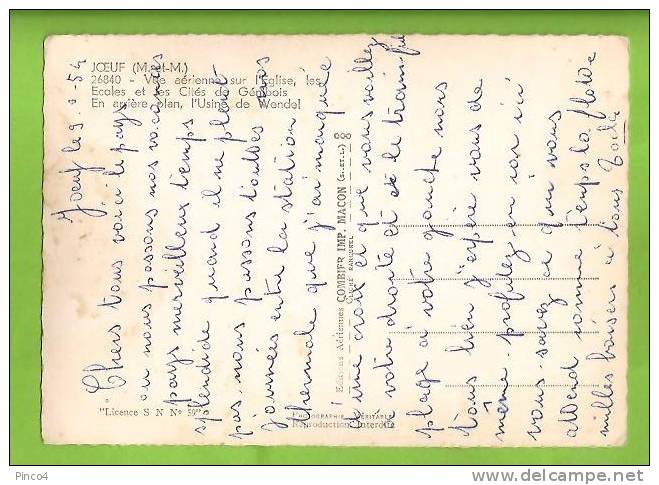 JŒUF (M.-et-M.)
26840 - Vue aérienne sur l'Eglise, les
Ecoles et les Cités de Génibois
En arrière plan, l'Usine de Wendel
Joeuf le 9
Chers tous voici le pays
ou nous passons nos vacances
pays merveilleux temps
splendide quand il ne pleut
pas, nous passons toutes nos
journées entre la station
thermale que j'ai marquée
d'une croix et que vous voyez
à votre droite et le train fil
plage à votre gauche nous
tous bien j'espère vous de
même. profitez en car ici
vous savez ce qui vous
attend comme temps la flotte
milles baisers à tous
Editions Aériennes COMBIER IMP. MACON (S.-ET-L.)
CLICHÉ RANCUREL
"Licence S N N° 59"
PHOTOGRAPHIE VÉRITABLE
Reproduction Interdite
Pinco4
www.delcampe.net